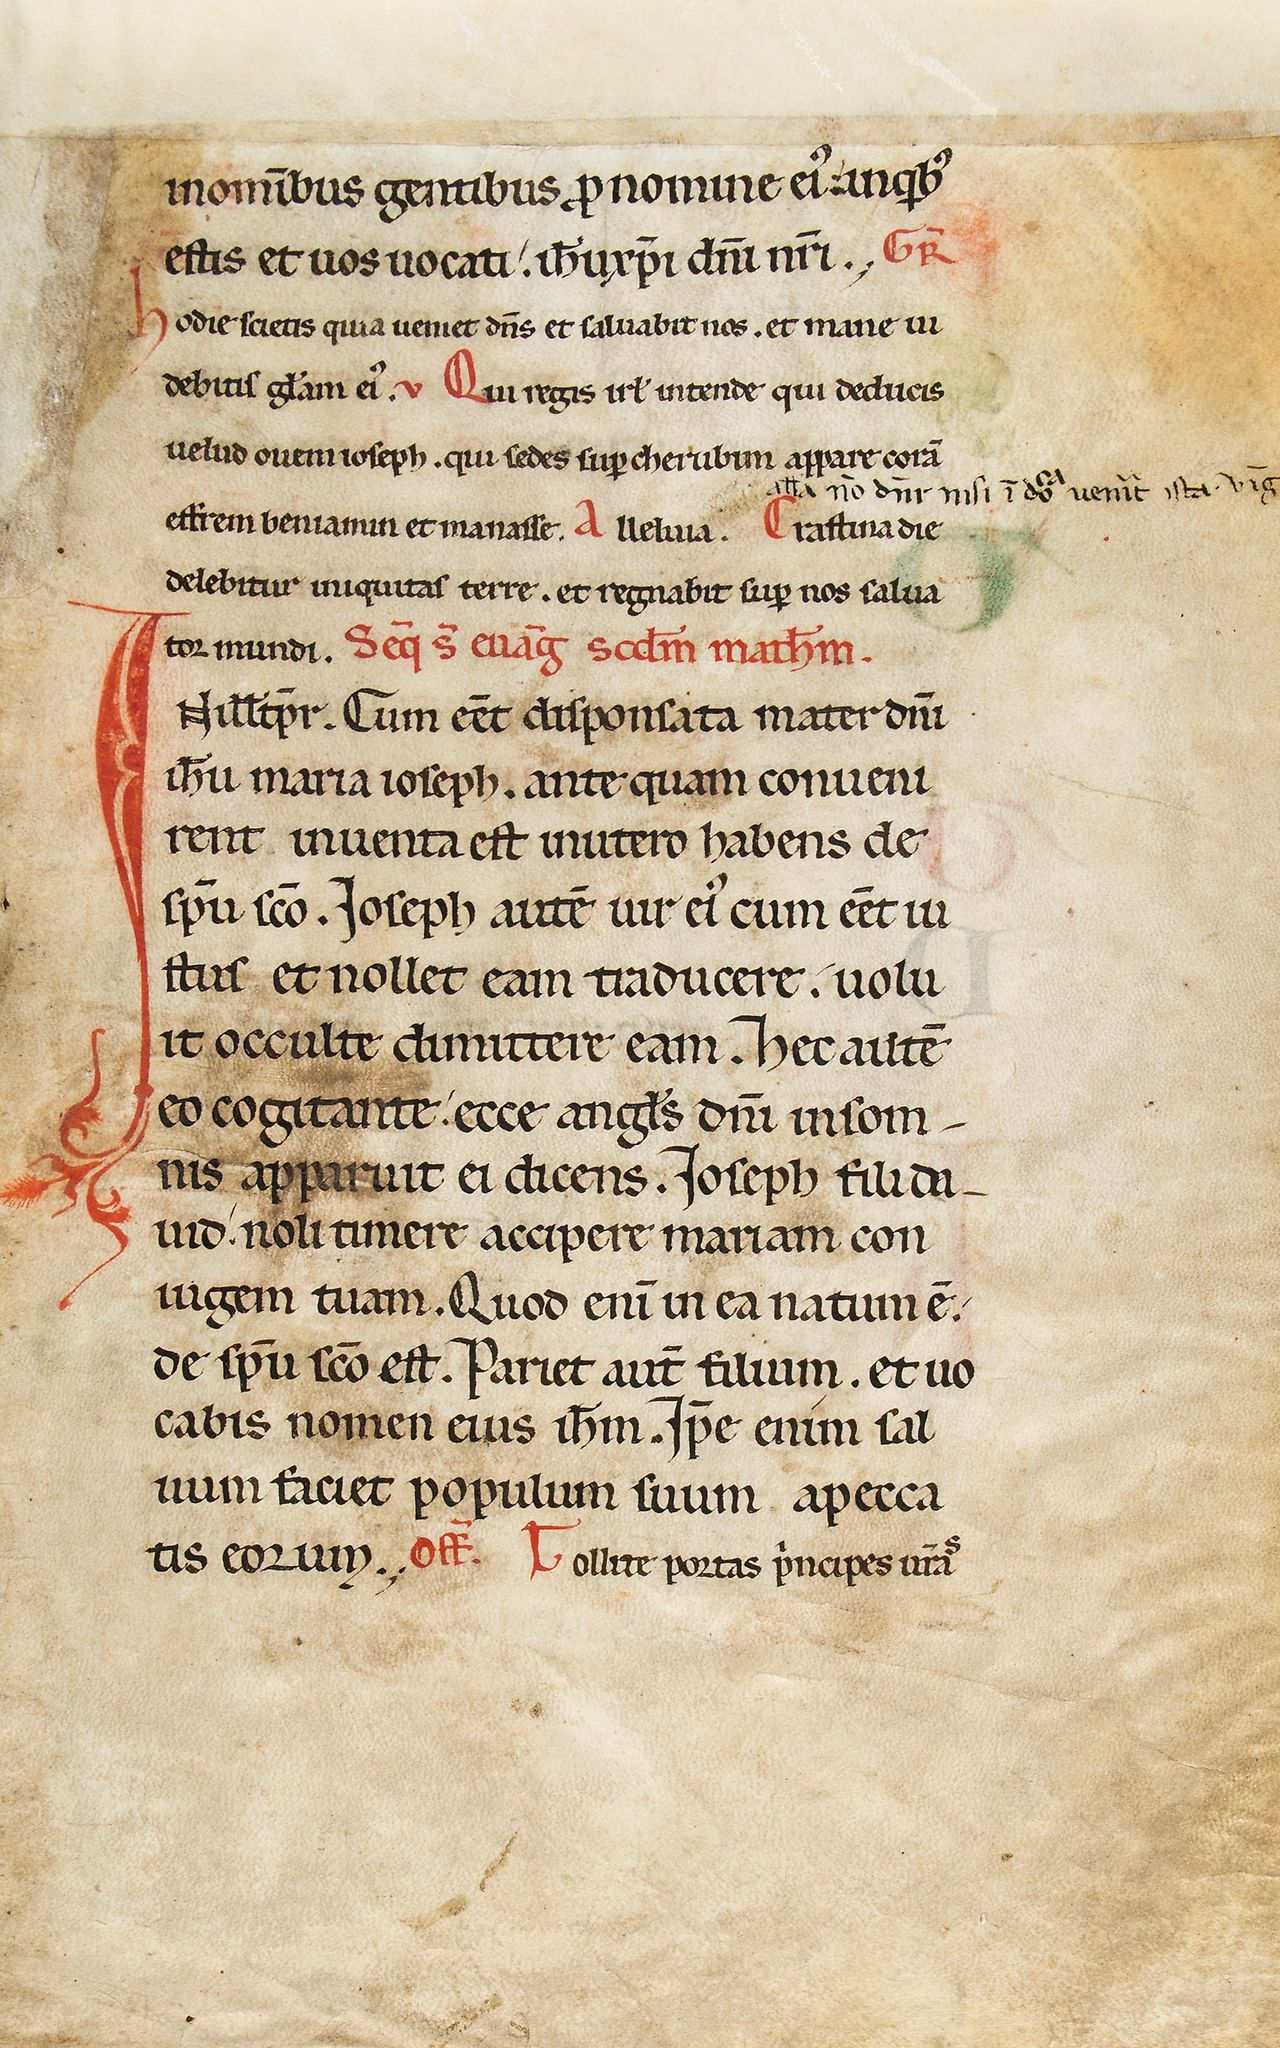 inom̄ibus gentibus ꝓ nomine eiꝰ: inqͥbꝰ
estis et uos uocati. ih̄u xp̄i dn̄i nr̄i. GR̄
hodie scietis quia ueniet dn̄s et saluabit nos. et mane ui
debitis gl̄am eiꝰ. v Qui regis isrl̄ intende qui deducis
uelud ouem ioseph. qui sedes suꝑ cherubim appare corā
all̄a nō dn̄r nisi ī dōca uen̄it ista vig
effrem beniamin et manasse. Alleluia. Crastina die
delebitur iniquitas terre. et regnabit suꝑ nos salua
tor mundi. Seq̄ s̄ euāg scdm̄ math̄m.
IN ill̄ tp̄r. Cum eēt disponsata mater dn̄i
ih̄u maria ioseph. ante quam conueni
rent inuenta est inutero habens de
sp̄u sc̄o. Joseph autē uir eiꝰ cum eēt iu
stus et nollet eam traducere. uolu
it occulte dimittere eam. Hec autē
eo cogitante. ecce angl̄s dn̄i insom-
nis apparuit ei dicens. Joseph fili da-
uid. noli timere accipere mariam con
iugem tuam. Quod eni̅ in ea natum ē.
de sp̄u sc̄o est. Pariet aut̄ filium. et uo
cabis nomen eius ih̄m. Jp̄e enim sal
uum faciet populum suum apecca
tis eorum. Off̄. Tollite portas pͥncipes ur̄as